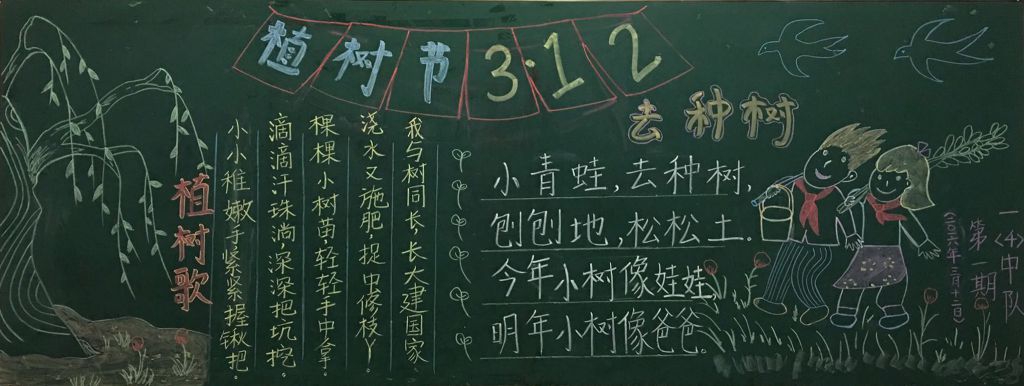 植树节3·12
植树歌
小小稚嫩手紧紧握锹把。
滴滴汗珠淌,深深把坑挖。
棵棵小树苗,轻轻手中拿。
浇水又施肥,捉虫修枝丫
我与树同长,长大建国家。
去种树
小青蛙,去种树,
刨刨地,松松土.
今年小树像娃娃,
明年小树像爸爸。
一〈4〉中队
第一期
(二〇一六年三月十二日)